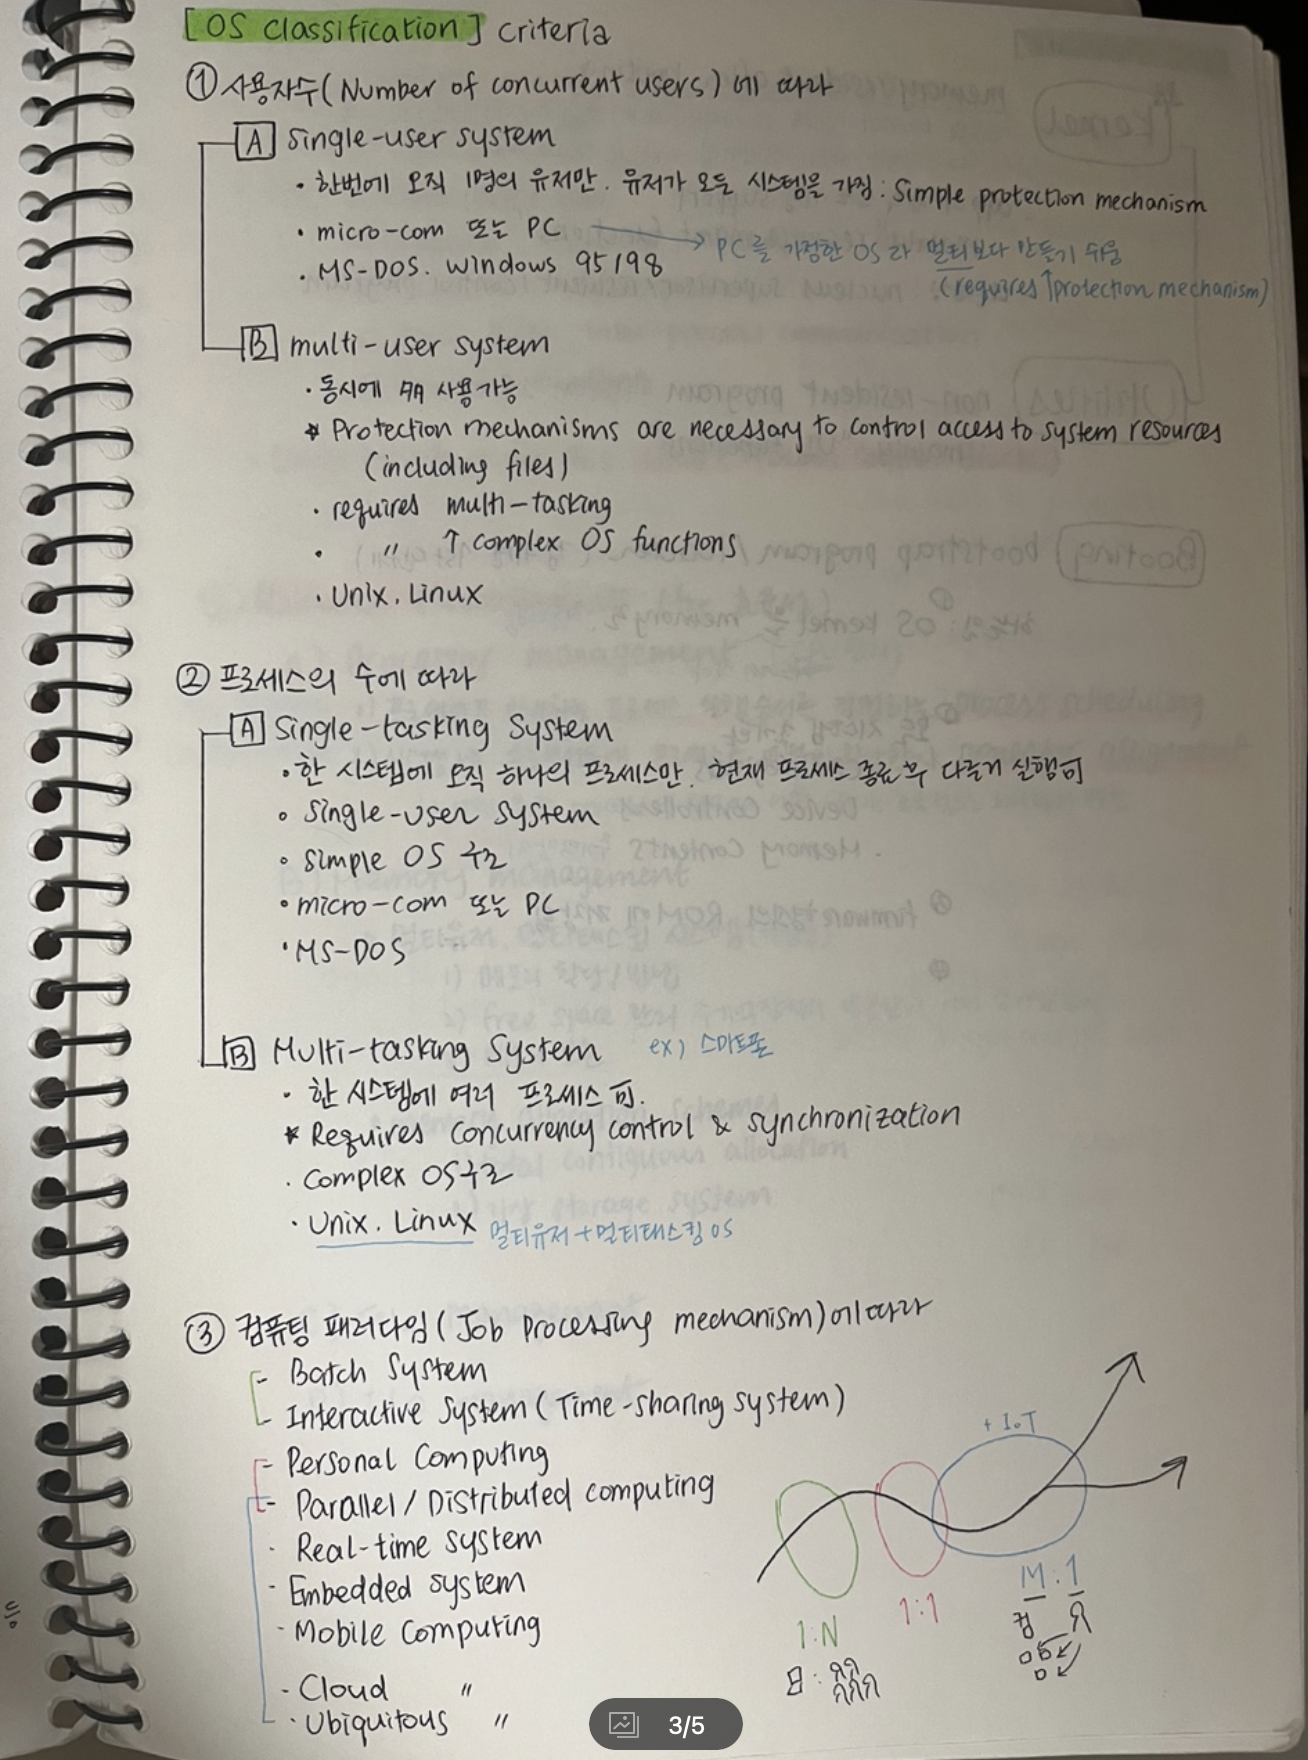 [OS classification] criteria
① 사용자수(Number of concurrent users)에 따라
A Single-user system
· 한번에 오직 1명의 유저만. 유저가 모든 시스템을 가짐 : Simple protection mechanism
· micro-com 또는 PC → PC를 가정한 OS라 멀티보다 만들기 쉬움
· MS-DOS. Windows 95/98 (requires ↑ protection mechanism)
B multi-user system
· 동시에 사용가능
* Protection mechanisms are necessary to control access to system resources
(including files)
· requires multi-tasking
· 〃 ↑ complex OS functions
· Unix. Linux
② 프로세스의 수에 따라
A Single-tasking System
· 한 시스템에 오직 하나의 프로세스만. 현재 프로세스 종료 후 다음거 실행 可
· Single-user system
· simple OS 구조
· micro-com 또는 PC
· MS-DOS
B Multi-tasking System ex) 스마트폰
· 한 시스템에 여러 프로세스 可.
* Requires concurrency control & synchronization
· Complex OS구조
· Unix. Linux 멀티유저+멀티태스킹 OS
③ 컴퓨팅 패러다임(Job Processing mechanism)에 따라
- Batch System
- Interactive System (Time-sharing system)
- Personal Computing
- Parallel / Distributed computing
· Real-time system
- Embedded system
- Mobile Computing
- Cloud 〃
· Ubiquitous 〃
+ IoT
1:N
1:1
M:1
컴
3/5